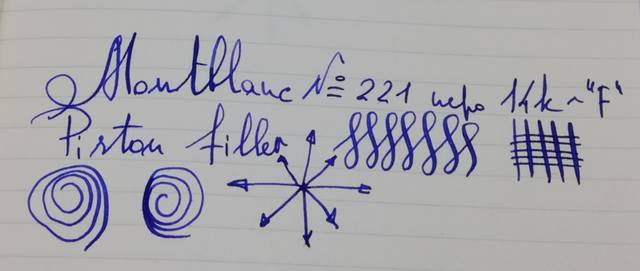 Montblanc № 221 перо 14k ~ "F"
Piston filler